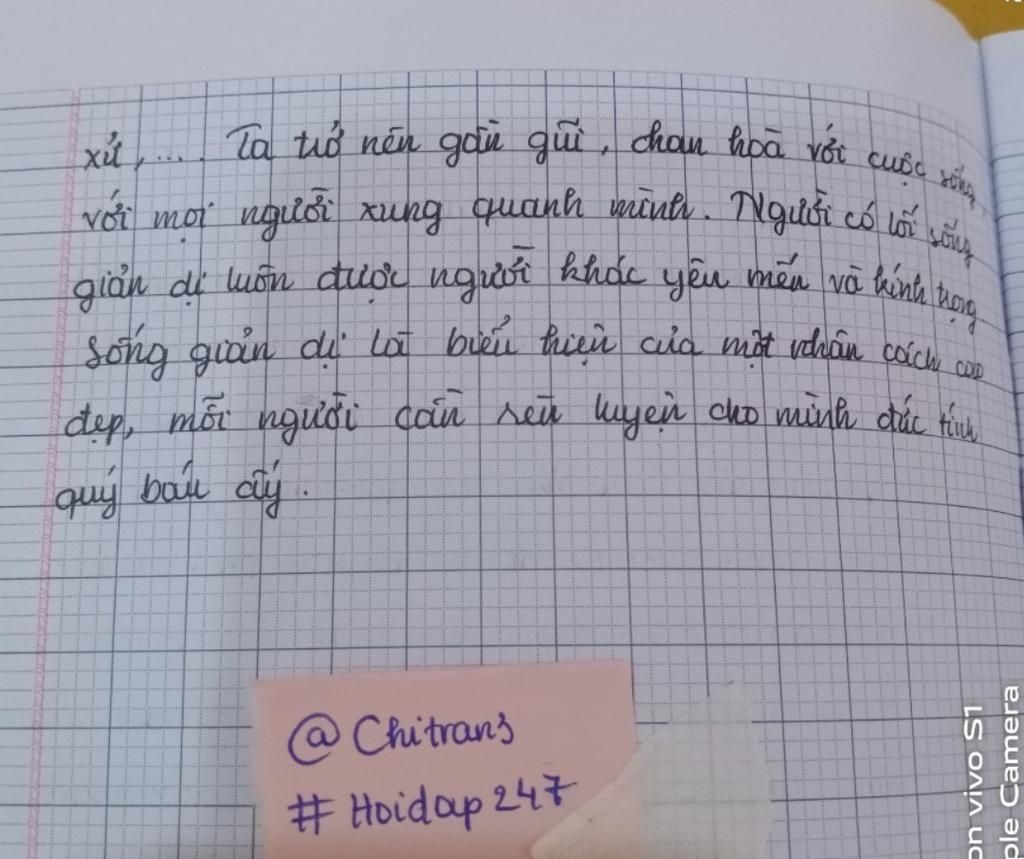 xử,... Ta trở nên gần gũi, chan hoà với cuộc sống,
với mọi người xung quanh mình. Người có lối sống
giản dị luôn được người khác yêu mến và kính trọng
Sống giản dị là biểu hiện của một nhân cách cao
đẹp, mỗi người cần rèn luyện cho mình đức tính
quý báu ấy.
@Chitran3
# Hoidap247
on vivo S1
ple Camera